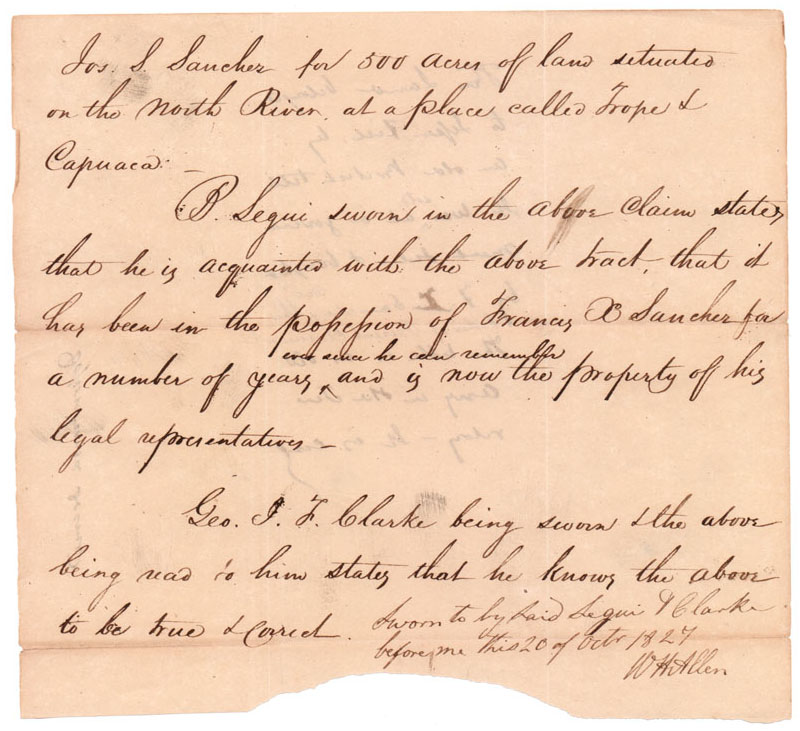 Jos. S Sanchez for 500 acres of land situated
on the North River, at a place called Trope &
Capuaca: —
B. Segui sworn in the above claim states
that he is acquainted with the above tract, that it
has been in the possession of Francis X Sanchez for
ever since he can remember
a number of years, and is now the property of his
legal representatives —
Geo. J. F. Clarke being sworn & the above
being read to him states that he knows the above
to be true & correct.
Sworn to by said Segui & Clarke
before me this 20 of Octr 1827
W H Allen